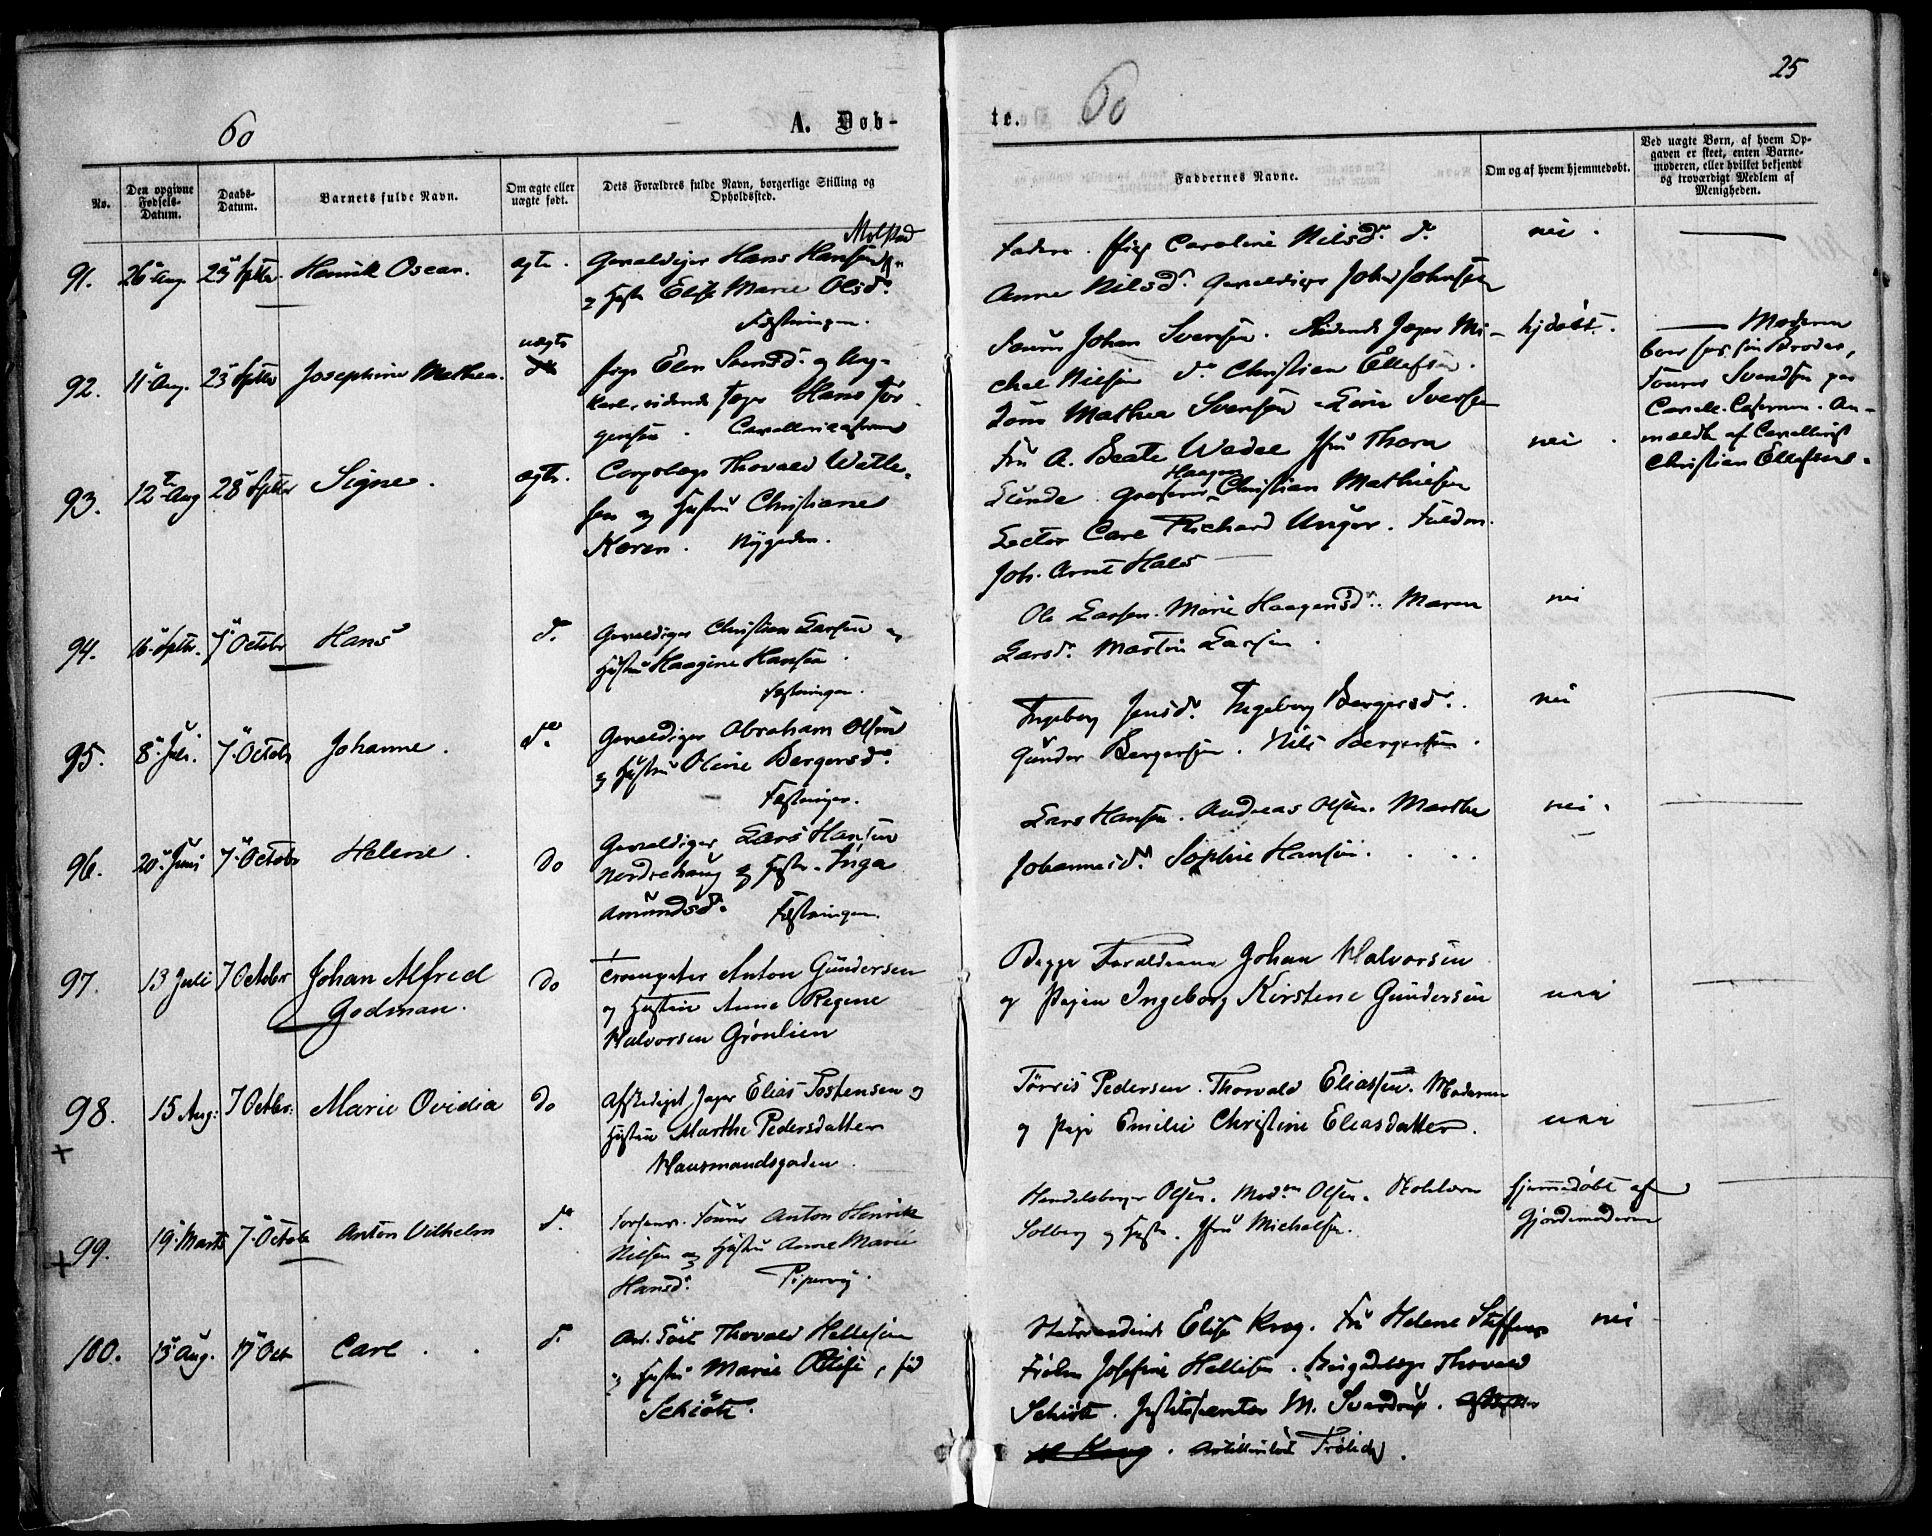 25
60
A. Døb-
te. 60
No.
Den opgivne Fødsels-Datum.
Daabs-Datum.
Barnets fulde Navn.
Om ægte eller uægte født.
Dets Forældres fulde Navn, borgerlige Stilling og Opholdssted.
Faddernes Navne.
Om og af hvem hjemmedøbt.
Ved uægte Børn, af hvem Opgaven er skeet, enten Barnemoderen, eller hvilket bekjendt og troværdigt Medlem af Menigheden.
91. 26 Aug. 23 Septbr. Henrik Oscar. ægte.
Molstad
Gevaldiger Hans Hansen
og Hustr Elise Marie Olsdr.
Fæstningen.
Faderen. Pige Caroline Nilsdr. do.
Anne Nilsdr. Gevaldiger Johs Johnsen
nei.
92. 11 Aug. 23 Septbr Josephine Mathea. uægte
Pige Elen Svensdr. og Ung-
karl, ridende Jæger Hans Jør-
gensen. Cavallericasernen
Fourer Johan Svensen. Ridende Jæger Mi-
chel Nilsen do Christian Ellefsen.
Jom Mathea Svensen Line Iversen
hjdøbt.
Moderen
boer hos sin Broder,
Fourer Svendsen paa
Cavall. Casernen. An-
meldt af Cavallerist
Christian Ellefsen.
93. 12te Aug 28 Septbr Signe. ægte.
Corpslæge Thorvald Wetle-
sen og Hustru Christiane
Keren. Nygaden.
Fru A. Beate Wedel Fru Thora
Lunde. Grosserer Haagen Christian Mathiesen
Lector Carl Richard Unger. Fuldm.
Joh. Arnt Hals
nei.
94. 16 Septbr. 7 Octobr Hans do.
Gevaldiger Christian Larsen og
Hustru Haagine Hansen.
Fæstningen.
Ole Larsen. Marie Haagensdr. Maren
Larsdr. Martin Larsen.
nei
95. 8 Juli. 7 Octobr Johanne. do.
Gevaldiger Abraham Olsen
og Hustru Oline Bergersdr.
Fæstningen.
Ingeborg Jensdr. Ingeborg Bergersdr.
Gunder Bergersen. Nils Bergersen.
nei
96. 20 Juni 7 Octobr Helene. do
Gevaldiger Lars Hansen
Nordrehaug og Hustr. Inga
Amundsdr. Fæstningen.
Lars Hansen. Andreas Olsen. Marthe
Johannesdr. Sophie Hansen.
nei.
97. 13 Juli 7 October Johan Alfred
Godman. do
Trompeter Anton Gundersen
og Hustru Anne Regine
Halvorsen Grønlien
Begge Forældrene Johan Halvorsen
og Pigen Ingeborg Kirstene Gundersen
nei
98. 15 Aug: 7 Octbr: Marie Ovidia do
Afskediget Jæger Elias Tostensen og
Hustru Marthe Pedersdatter
Hausmandsgaden.
Tørris Pedersen. Thorvald Eliassen. Moderen
og Pige Emilie Christine Eliasdatter.
nei
99. 19 Marts 7 Octobr Anton Vilhelm do.
Fourer Anton Henrik
Nilsen og Hustru Anne Marie
Hansdr. Pipervig.
Handelsborger Olsen. Madam Olsen.
Solberg og Hustr. Fru Michelsen.
hjemmedøbt af
Gjordemoderen
100. 13 Aug. 17 Oct Carl do.
Thorvald Hellesen
og Hustru Marie Elise, fød
Schiøtt.
Statsraadinde Elise Krog. Fru Helene Steffens
Frøken Josefine Hellesen. Brigadelæge Thorvald
Schiøtt. M. Sverdrup.
Frølich.
nei